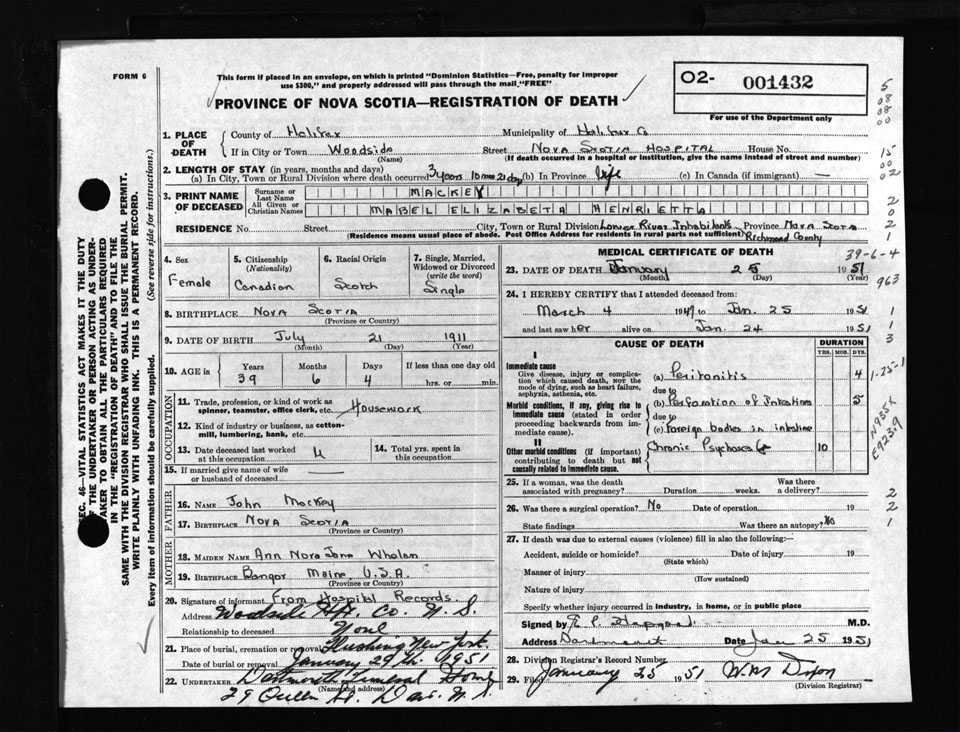 FORM 6
This form if placed in an envelope, on which is printed "Dominion Statistics—Free, penalty for improper
use $300," and properly addressed will pass through the mail, "FREE"
PROVINCE OF NOVA SCOTIA—REGISTRATION OF DEATH
O2- 001432
For use of the Department only
SEC. 46—VITAL STATISTICS ACT MAKES IT THE DUTY
OF THE UNDERTAKER OR PERSON ACTING AS UNDER-
TAKER TO OBTAIN ALL THE PARTICULARS REQUIRED
IN THE "REGISTRATION OF DEATH" AND TO FILE THE
SAME WITH THE DIVISION REGISTRAR WHO SHALL ISSUE THE BURIAL PERMIT.
WRITE PLAINLY WITH UNFADING INK. THIS IS A PERMANENT RECORD.
Every item of information should be carefully supplied. (See reverse side for instructions.)
1. PLACE OF DEATH
County of Halifax Municipality of Halifax Co
If in City or Town Woodside Street Nova Scotia Hospital House No.
(Name) (If death occurred in a hospital or institution, give the name instead of street and number)
2. LENGTH OF STAY (in years, months and days)
(a) In City, Town or Rural Division where death occurred 3 years 10 mos 21 days (b) In Province life (c) In Canada (if immigrant) —
3. PRINT NAME OF DECEASED
Surname or Last Name MACKEY
All Given or Christian Names MABEL ELIZABETH HENRIETTA
RESIDENCE No. Street City, Town or Rural Division Lower River Inhabitants Province Nova Scotia
(Residence means usual place of abode. Post Office Address for residents in rural parts not sufficient) Richmond County
4. Sex Female
5. Citizenship (Nationality) Canadian
6. Racial Origin Scotch
7. Single, Married, Widowed or Divorced (write the word) Single
8. BIRTHPLACE Nova Scotia
(Province or Country)
9. DATE OF BIRTH July 21 1911
(Month) (Day) (Year)
10. AGE in Years Months Days If less than one day old
39 6 4 hrs. or min.
OCCUPATION
11. Trade, profession or kind of work as
spinner, teamster, office clerk, etc. Housework
12. Kind of industry or business, as cotton-
mill, lumbering, bank, etc.
13. Date deceased last worked
at this occupation
14. Total yrs. spent in
this occupation
15. If married give name of wife
or husband of deceased
FATHER
16. Name John Mackey
17. Birthplace Nova Scotia
(Province or Country)
MOTHER
18. Maiden Name Ann Nora Jane Whalan
19. Birthplace Bangor Maine, U.S.A.
(Province or Country)
20. Signature of informant From Hospital Records.
Address Woodside Hfx. Co. N. S.
Relationship to deceased None
21. Place of burial, cremation or removal Flushing New York.
Date of burial or removal January 29th. 1951
22. UNDERTAKER Dartmouth Funeral Home
(Name and address)
29 Queen St. Dar. N. S.
MEDICAL CERTIFICATE OF DEATH
23. DATE OF DEATH January 25 1951
(Month) (Day)
24. I HEREBY CERTIFY that I attended deceased from:
March 4 1947 to Jan. 25 1951
and last saw her alive on Jan. 24 1951
CAUSE OF DEATH DURATION
YRS. MOS. DYS.
I
Immediate cause
Give disease, injury or complica-
tion which caused death, NOT the
mode of dying, such as heart failure,
asphyxia, asthenia, etc.
(a) Peritonitis 4
due to
Morbid conditions, if any, giving rise to
immediate cause (stated in order
proceeding backwards from im-
mediate cause).
(b) Perforation of Intestines 5
due to
(c) Foreign bodies in intestine
II
Other morbid conditions (if important)
contributing to death but not
causally related to immediate cause.
Chronic Psychoses 10
25. If a woman, was the death Was there
associated with pregnancy? Duration weeks. a delivery?
26. Was there a surgical operation? No Date of operation 19
State findings Was there an autopsy? No
27. If death was due to external causes (violence) fill in also the following:
Accident, suicide or homicide? Date of injury 19
(State which)
Manner of injury
(How sustained)
Nature of injury
Specify whether injury occurred in industry, in home, or in public place
Signed by M.D.
Address Dartmouth Date Jan 25 1951
28. Division Registrar's Record Number
29. Filed January 25 1951 W.M. Dixon
(Division Registrar)
5
08
08
00
15
00
02
2
0
2
1
39-6-4
963
1
1
3
1-25-1
N935X
E923.9
2
2
1